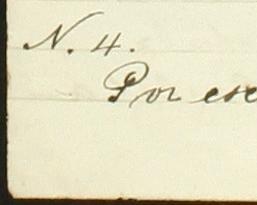 N. 4.
Por esc